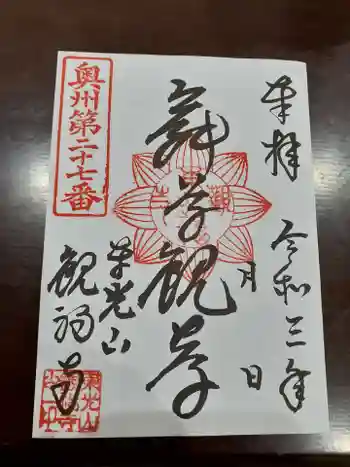 奉拝
令和三年
月
日
舞草観音
奥州第二十七番
東光山
観福寺